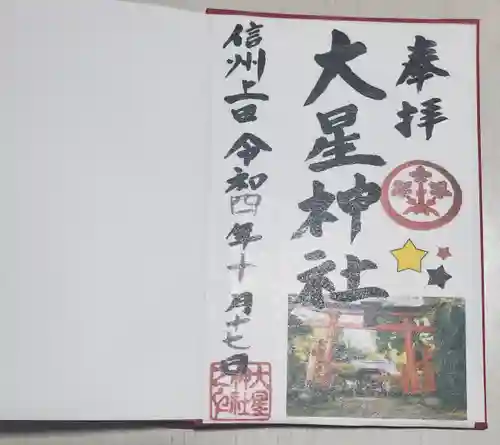 奉拝
大星神社
信州上田 令和四年十月十七日
大星神社